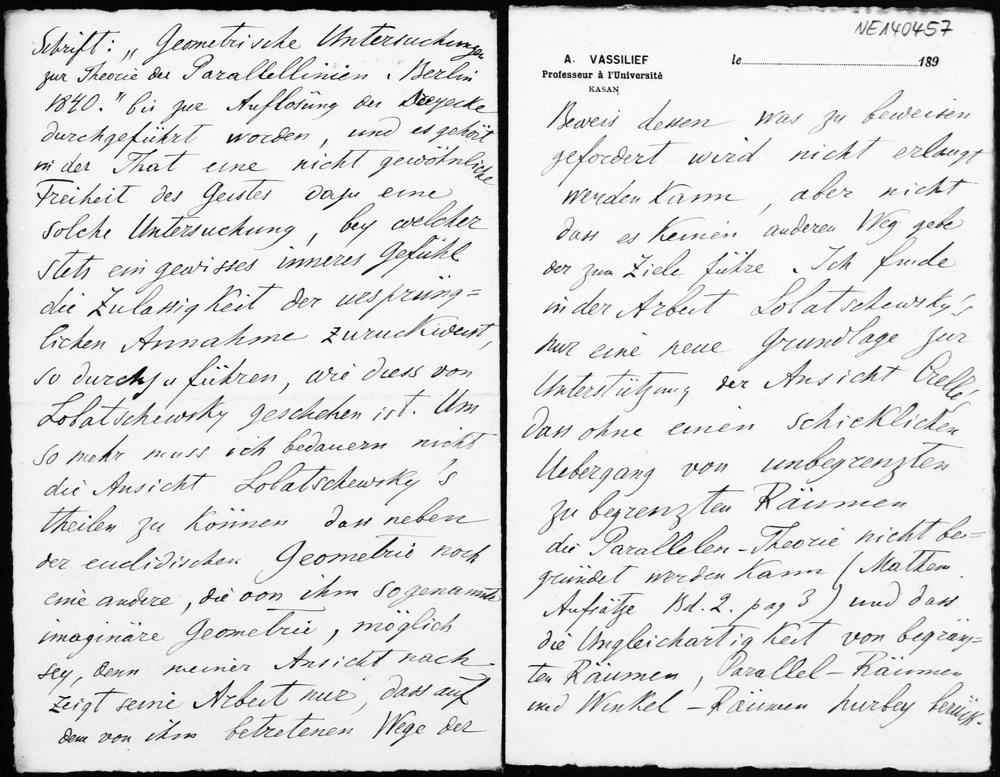 Schrift: „Geometrische Untersuchungen
zur Theorie der Parallellinien. Berlin
1840." bis zur Auflösung der Dreyecke
durchgeführt worden, und es gehört
in der That eine nicht gewöhnliche
Freiheit des Geistes dazu eine
solche Untersuchung, bey welcher
stets ein gewisses inneres Gefühl
die Zulassigkeit der ursprüng=
lichen Annahme zurückweist,
so durchzuführen, wie diess von
Lobatschewsky geschehen ist. Um
so mehr muss ich bedauern nicht
die Ansicht Lobatschewsky's
theilen zu können dass neben
der euclidischen Geometrie noch
eine andere, die von ihm sogenannte
imaginäre Geometrie, möglich
sey, denn meiner Ansicht nach
zeigt seine Arbeit nur, dass auf
dem von ihm betretenen Wege der
NE140457
A. VASSILIEF
Professeur à l'Université
KASAN
le 189
Beweis dessen was zu beweisen
gefordert wird nicht erlangt
werden kann, aber nicht
dass es keinen anderen Weg gebe
der zum Ziele führe. Ich finde
in der Arbeit Lobatschewsky's
nur eine neue Grundlage zur
Unterstützung der Ansicht Crelle's
dass ohne einen schicklichen
Uebergang von unbegrenzten
zu begrenzten Räumen
die Parallelen-Theorie nicht be=
gründet werden kann (Mathem.
Aufsätze Bd. 2. pag 3) und dass
die Ungleichartigkeit von begränz=
ten Räumen, Parallel-Räumen
und Winkel-Räumen hierbey